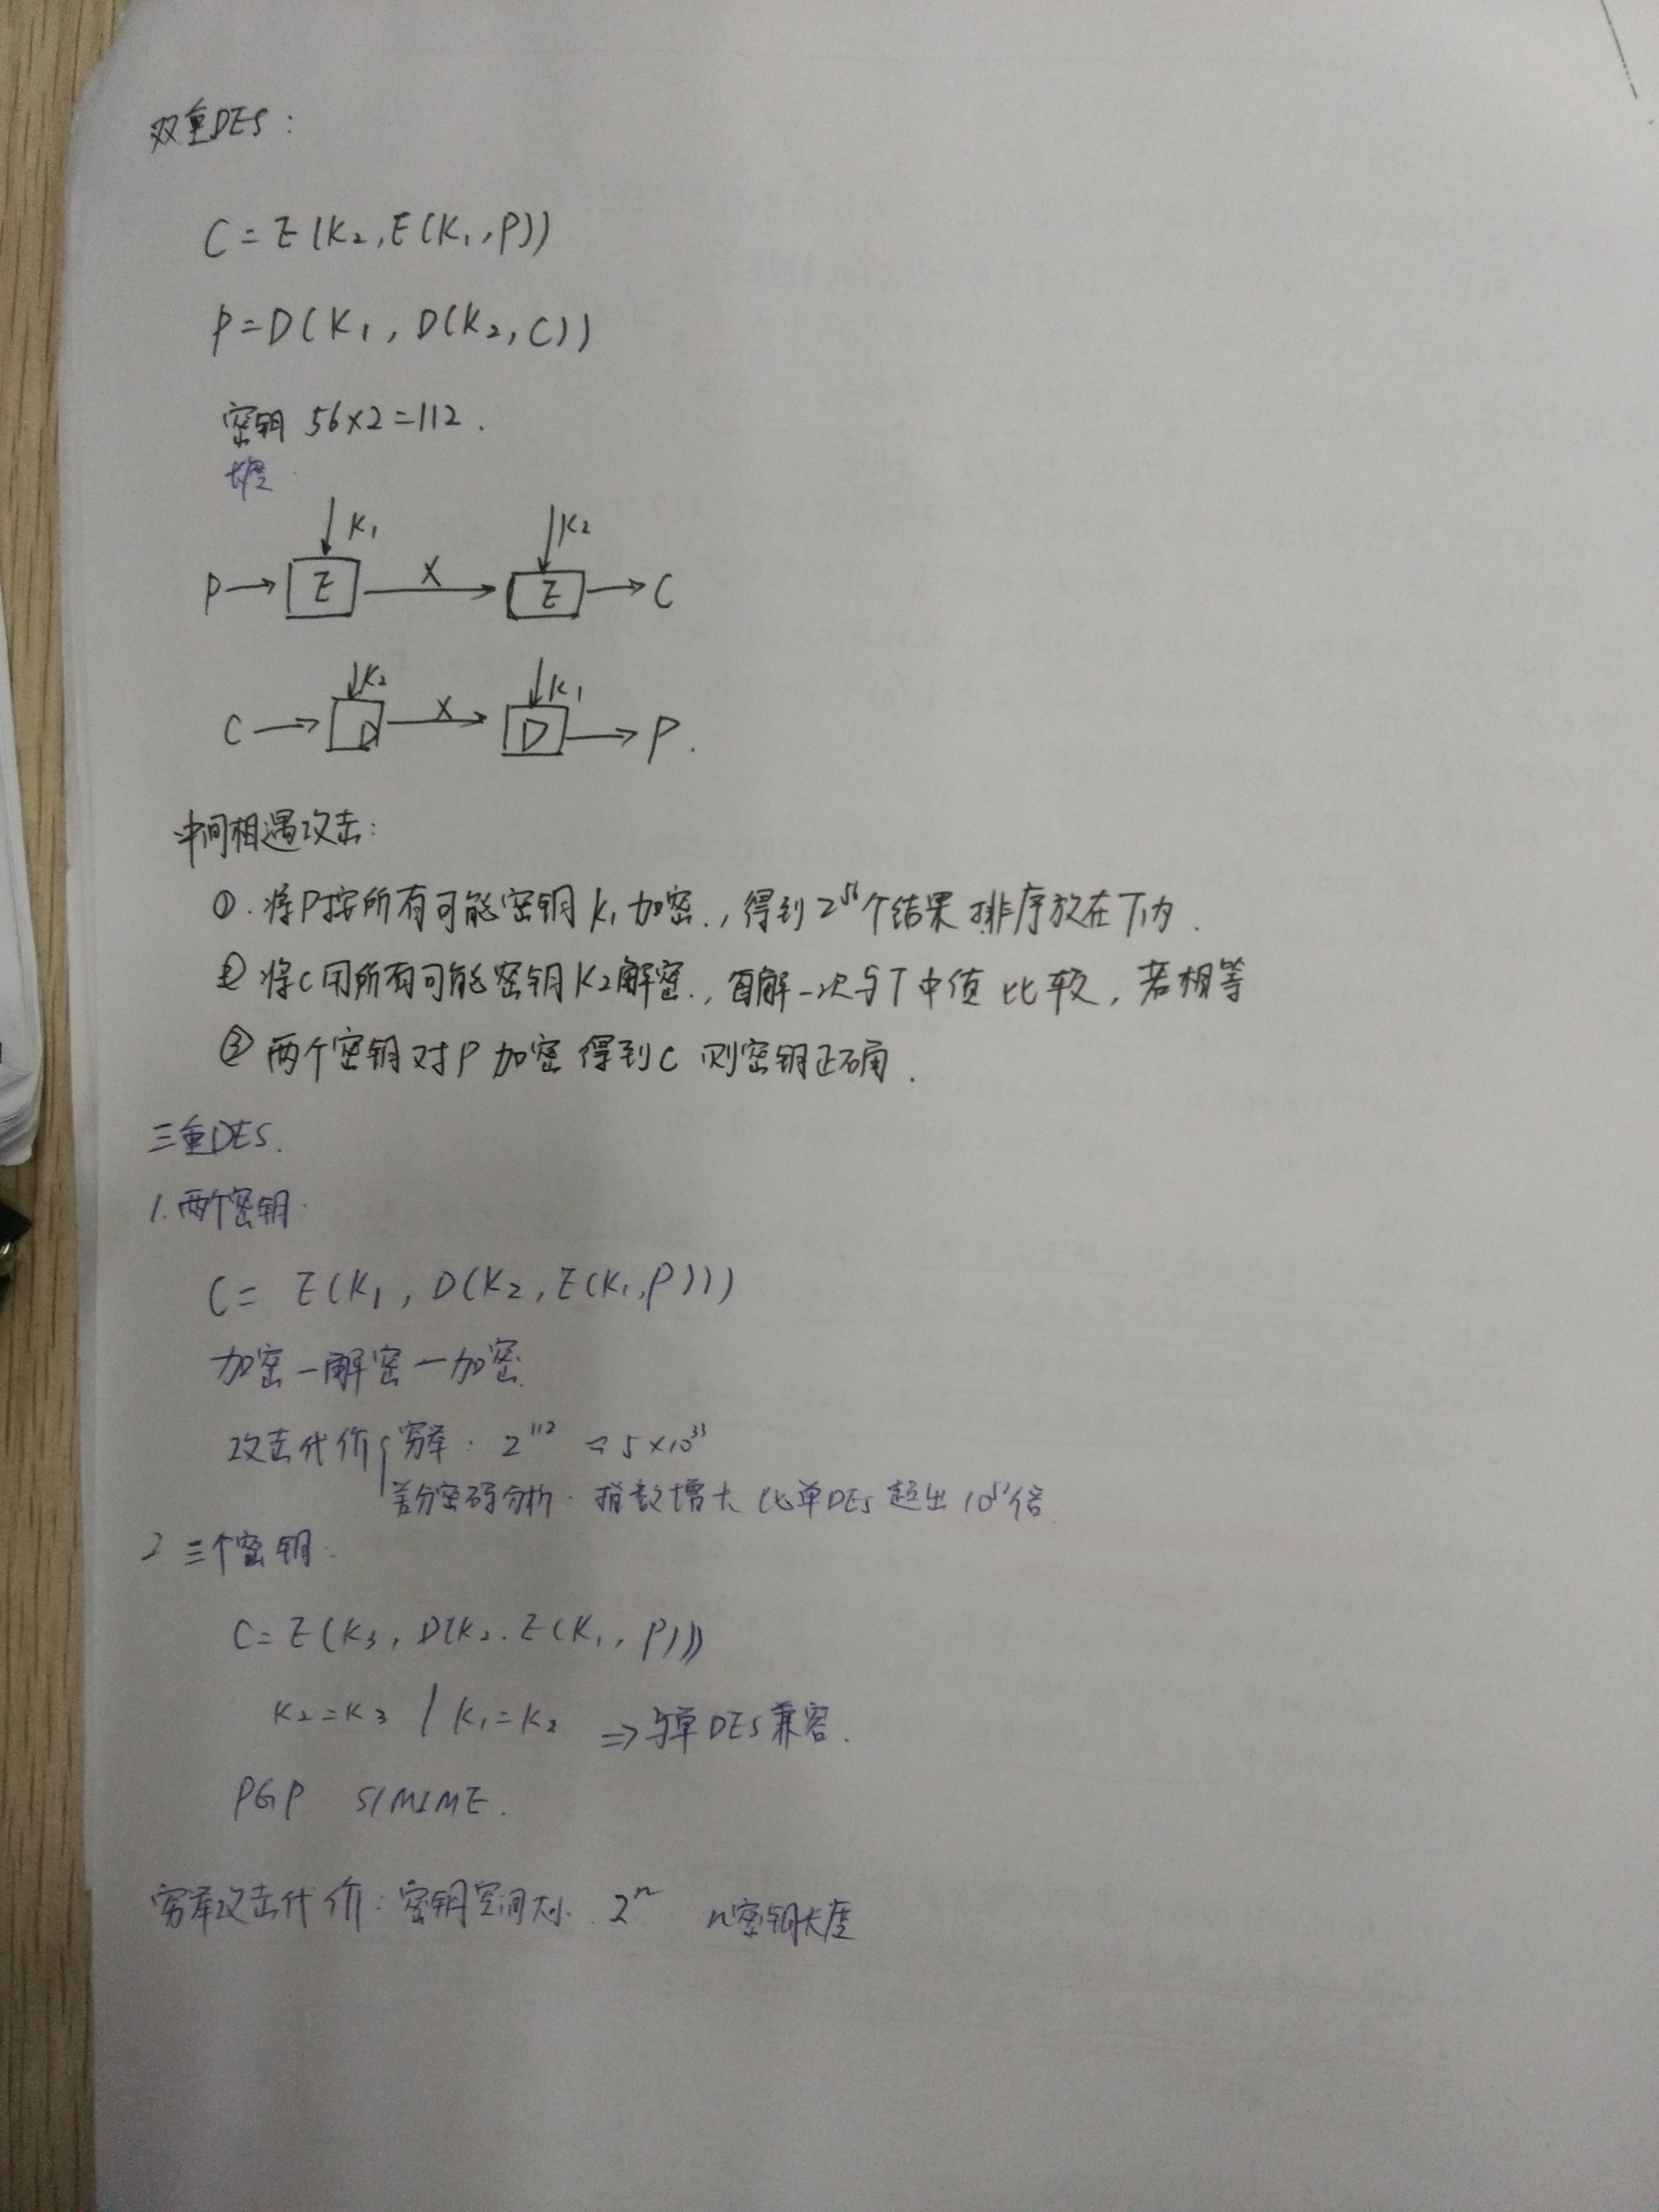 双重DES:
C=E(K₂,E(K₁,P))
P=D(K₁,D(K₂,C))
密钥 56×2=112.
长度
K₁ K₂
P→ E X→ E →C
K₂ K₁
C→ D X→ D →P.
中间相遇攻击:
①.将P按所有可能密钥K₁加密.,得到2⁵⁶个结果 排序放在T内.
② 将C用所有可能密钥K₂解密.,每解一次与T中值比较,若相等
③ 两个密钥对P加密得到C 则密钥正确.
三重DES.
1.两个密钥:
C= E(K₁,D(K₂,E(K₁,P)))
加密-解密-加密.
攻击代价{穷举: 2¹¹² = 5×10³³
差分密码分析: 指数增大 比单DES超出 倍
2 三个密钥:
C=E(K₃,D(K₂.E(K₁,P)))
K₂=K₃ / K₁=K₂ ⇒与单DES兼容.
PGP S/MIME.
穷举攻击代价:密钥空间大小. 2ⁿ n密钥长度